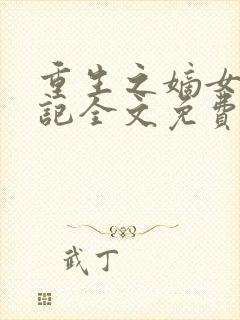 重生之嫡女
記全文免費
武丁